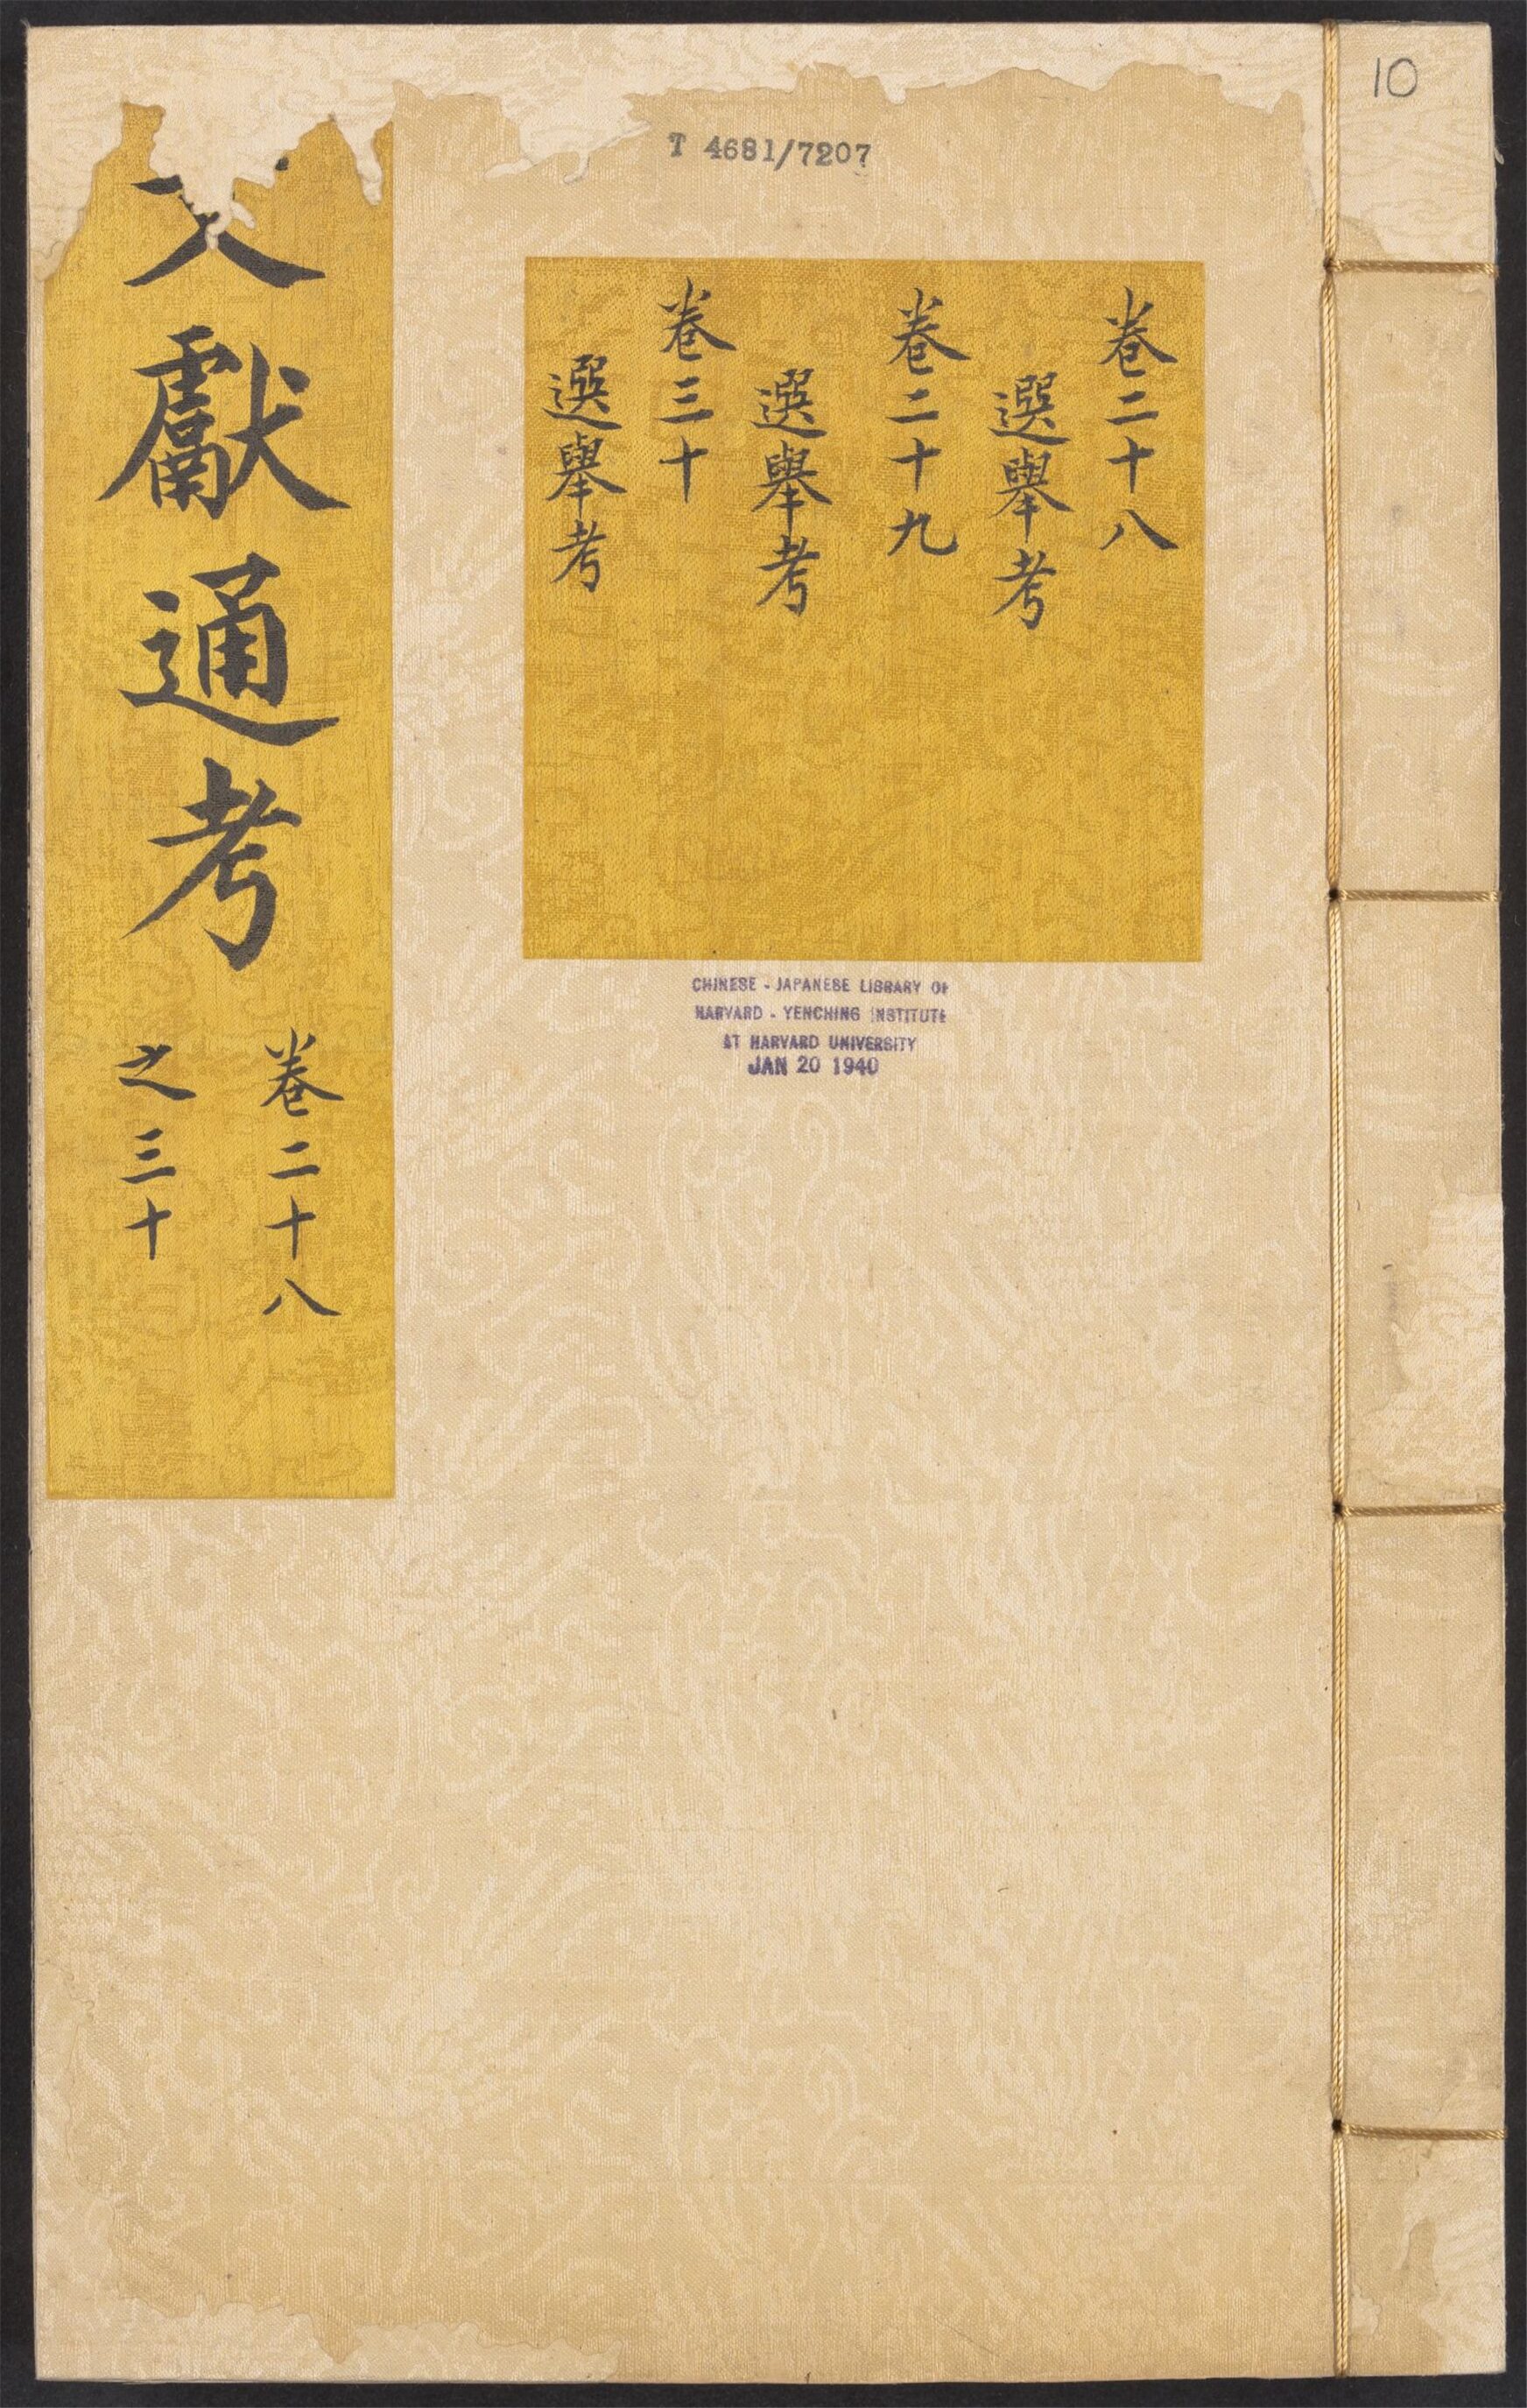 10
T 4681/7207
卷二十八
選舉考
卷二十九
選舉考
卷三十
選舉考
文獻通考
卷二十八
之三十
CHINESE - JAPANESE LIBRARY OF
HARVARD - YENCHING INSTITUTE
AT HARVARD UNIVERSITY
JAN 20 1940